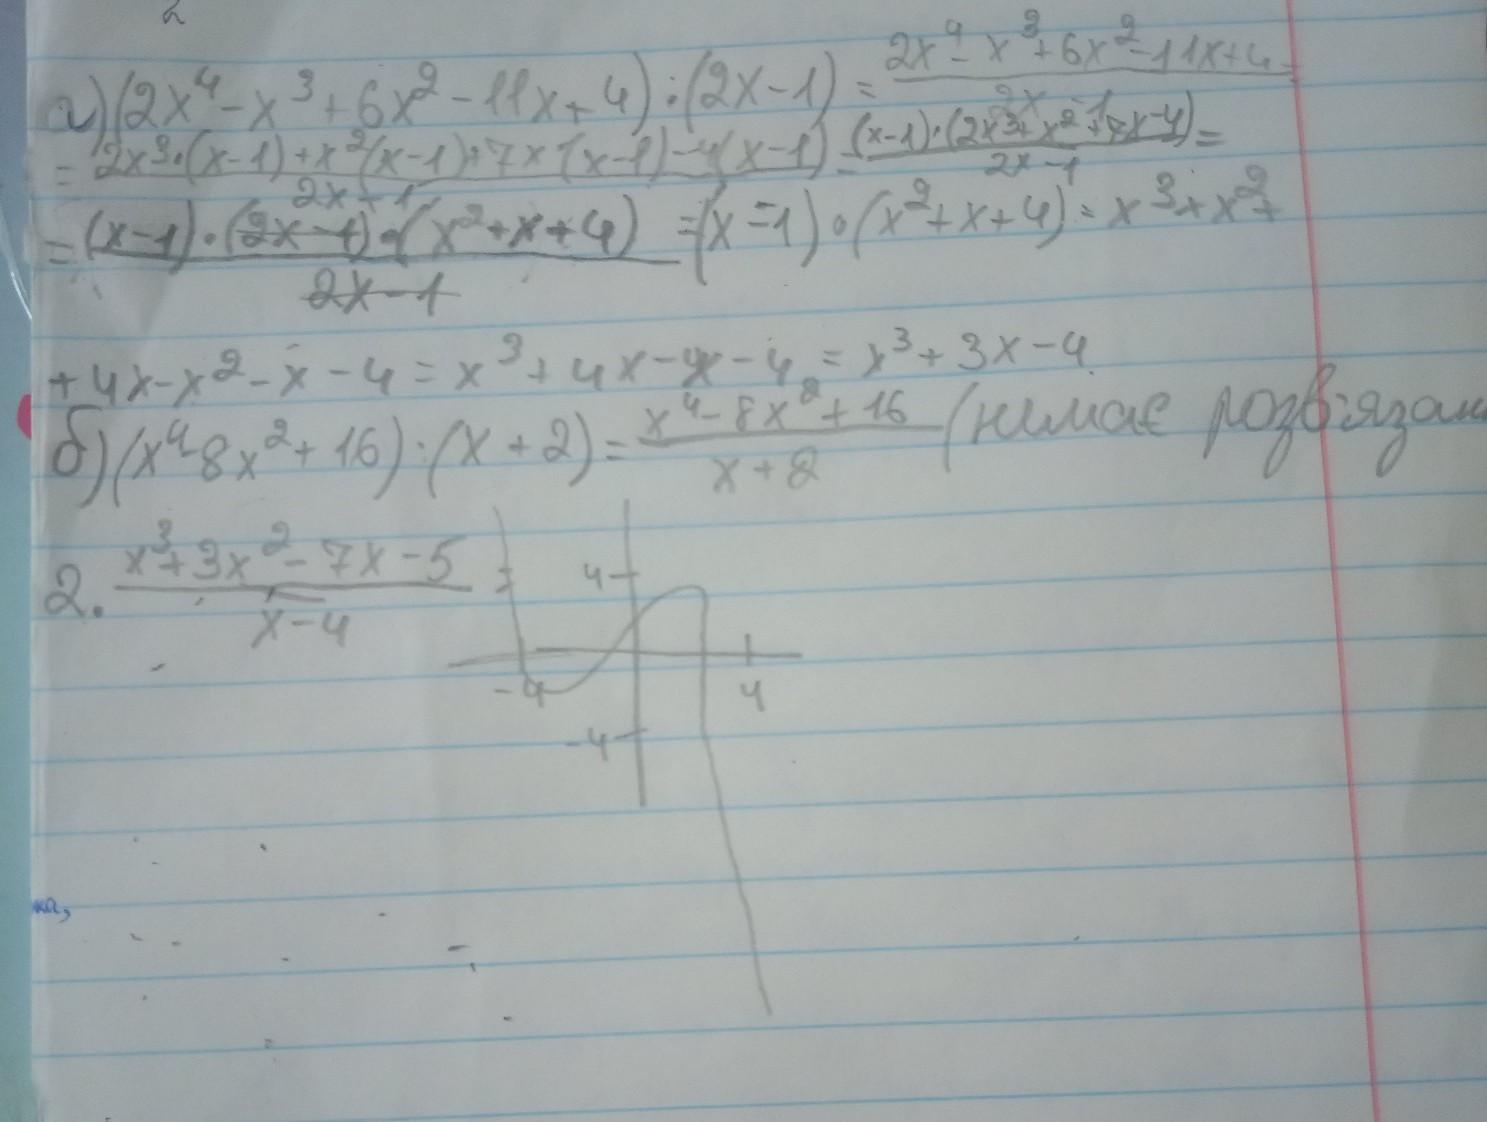 2
а) (2x⁴ - x³ + 6x² - 11x + 4) : (2x - 1) = (2x⁴ - x³ + 6x² - 11x + 4)/(2x - 1) =
= (2x³·(x-1) + x²(x-1) + 7x(x-1) - 4(x-1))/(2x + 1) = ((x-1)·(2x³ + x² + 7x - 4))/(2x - 1) =
= ((x-1)·(2x-1)·(x² + x + 4))/(2x - 1) = (x - 1)·(x² + x + 4) = x³ + x² +
+ 4x - x² - x - 4 = x³ + 4x - x - 4 = x³ + 3x - 4
б) (x⁴ - 8x² + 16) : (x + 2) = (x⁴ - 8x² + 16)/(x + 2) (немає
2. (x³ + 3x² - 7x - 5)/(x - 4) =
4
-4 4
-4
ка,